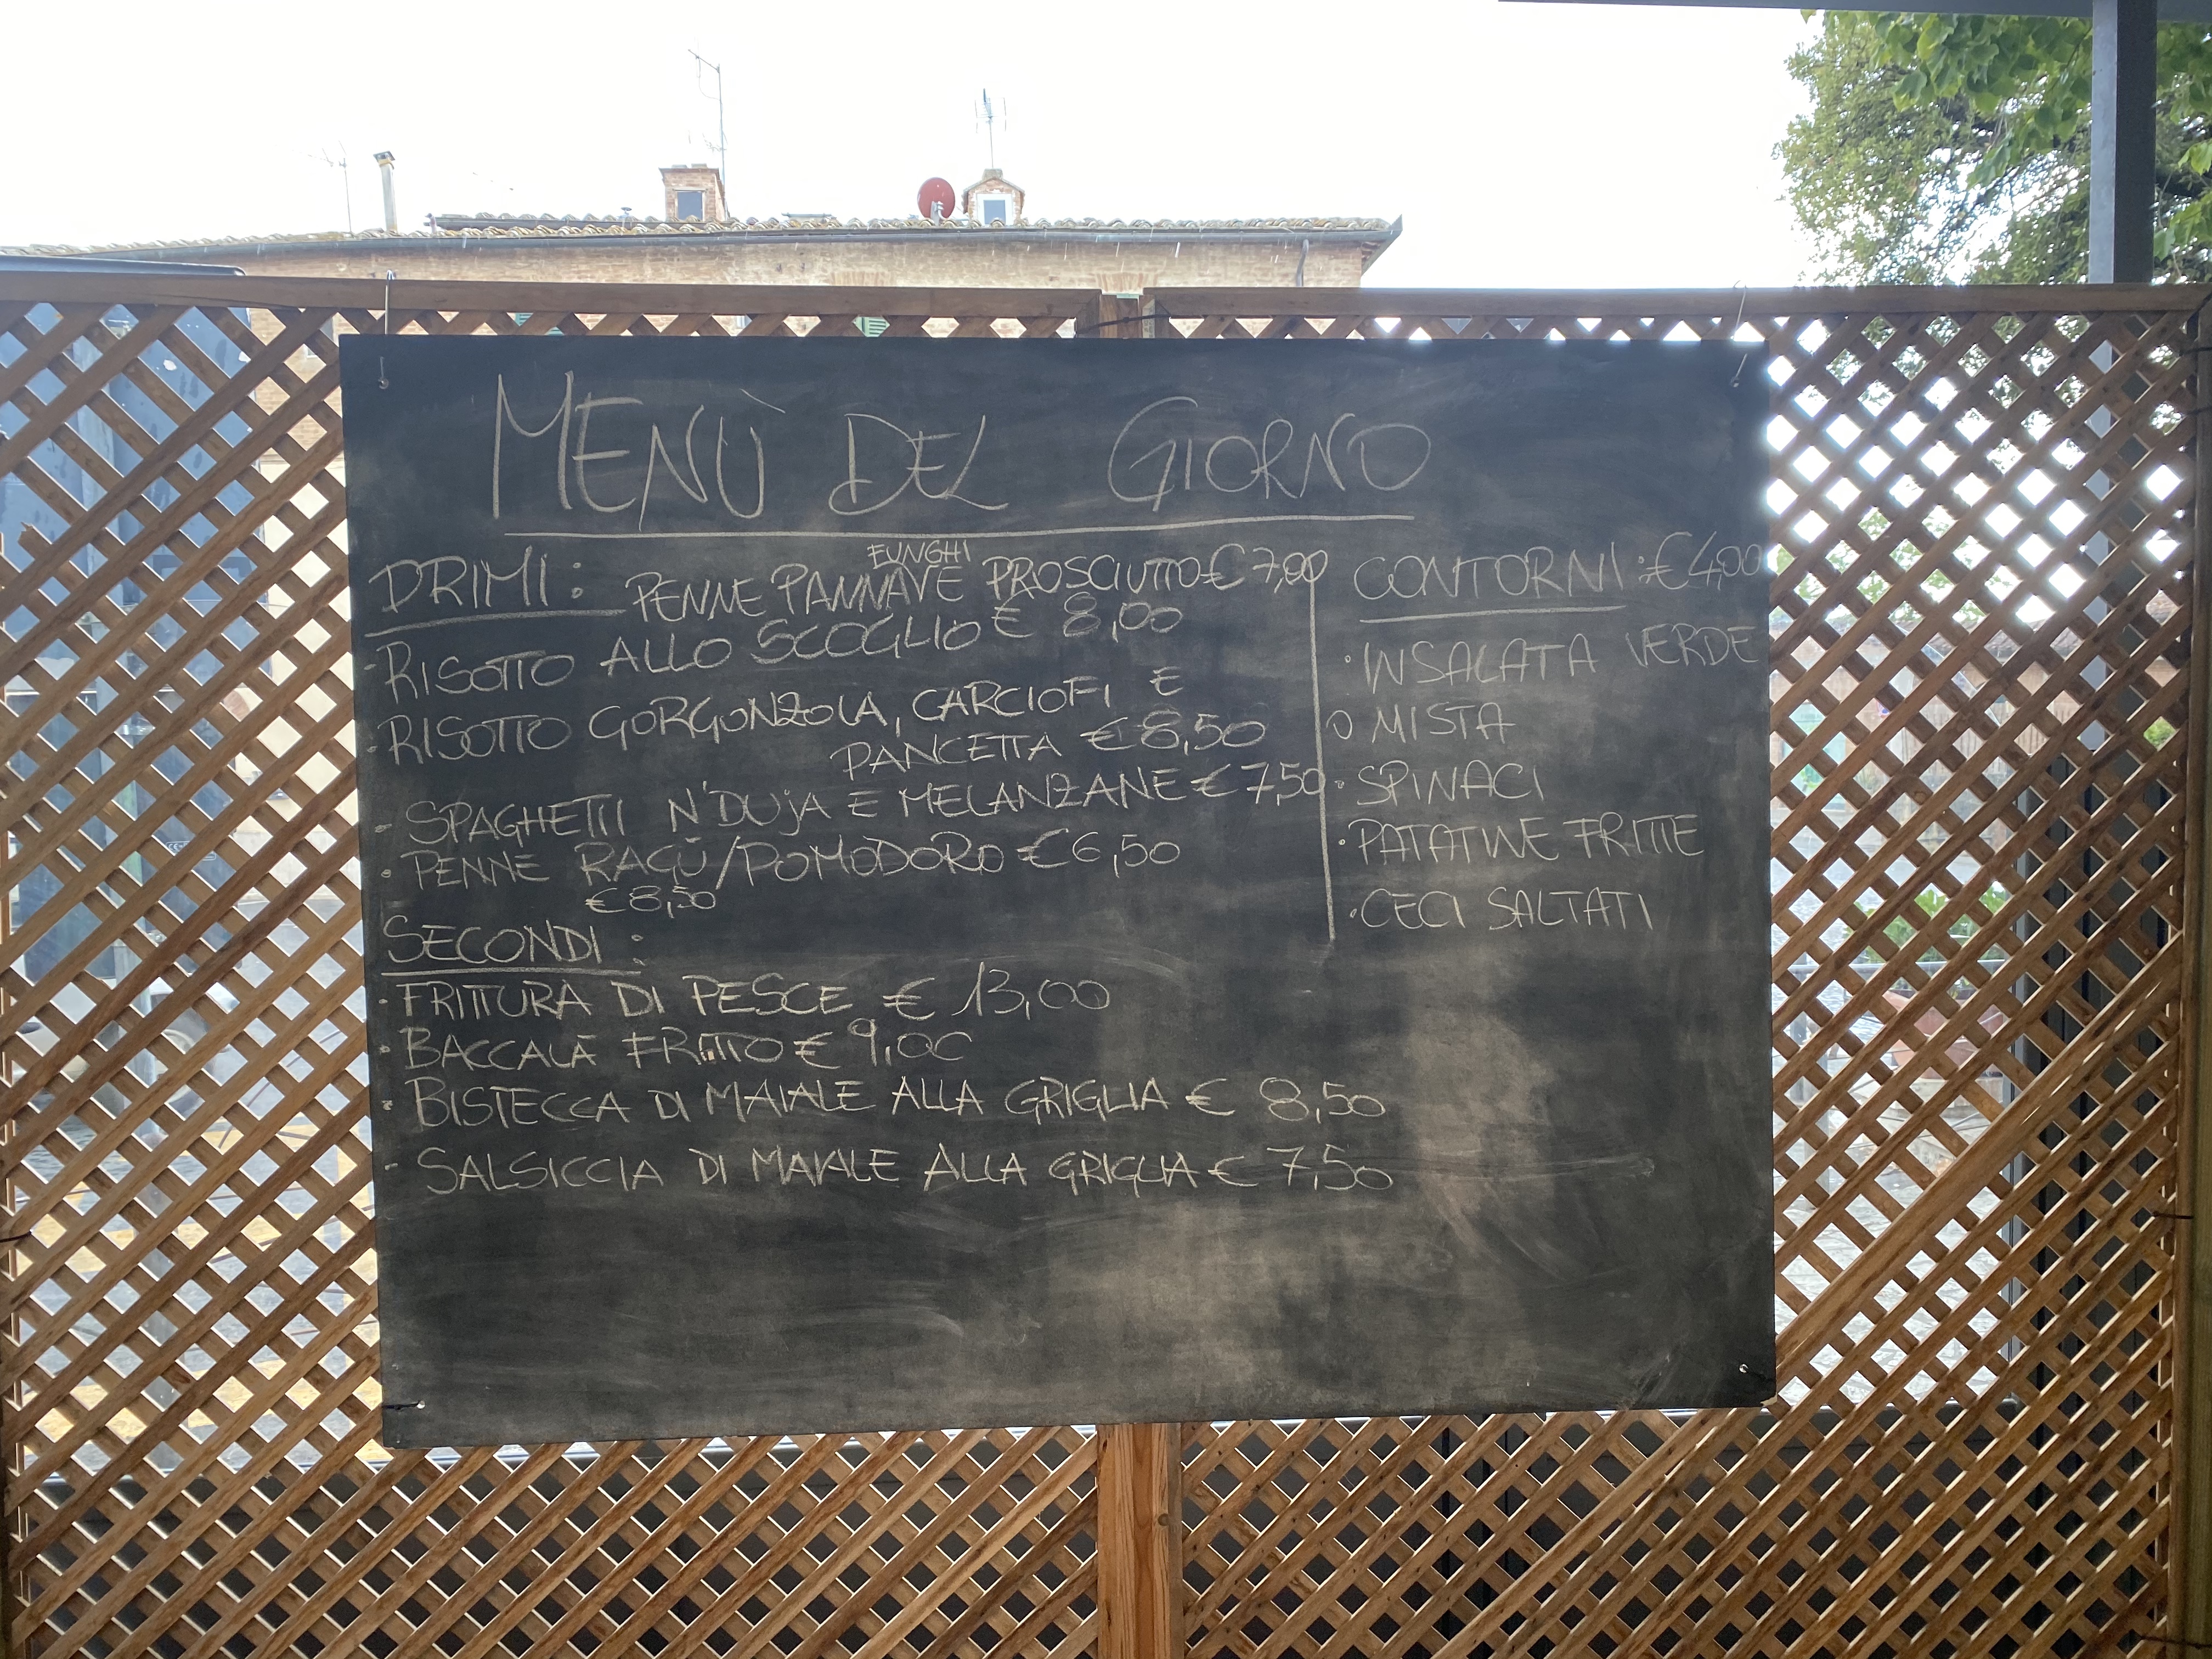 MENÙ DEL GIORNO
PRIMI: PENNE PANNA FUNGHI E PROSCIUTTO € 7,00
·RISOTTO ALLO SCOGLIO € 8,00
·RISOTTO GORGONZOLA, CARCIOFI E
PANCETTA € 8,50
· SPAGHETTI N'DUjA E MELANZANE € 7,50
· PENNE RAGÙ/POMODORO € 6,50
€ 8,50
SECONDI :
·FRITTURA DI PESCE € 13,00
· BACCALÀ FRITTO € 9,00
· BISTECCA DI MAIALE ALLA GRIGLIA € 8,50
- SALSICCIA DI MAIALE ALLA GRIGLIA € 7,50
CONTORNI : € 4,00
· INSALATA VERDE
O MISTA
· SPINACI
· PATATINE FRITTE
· CECI SALTATI